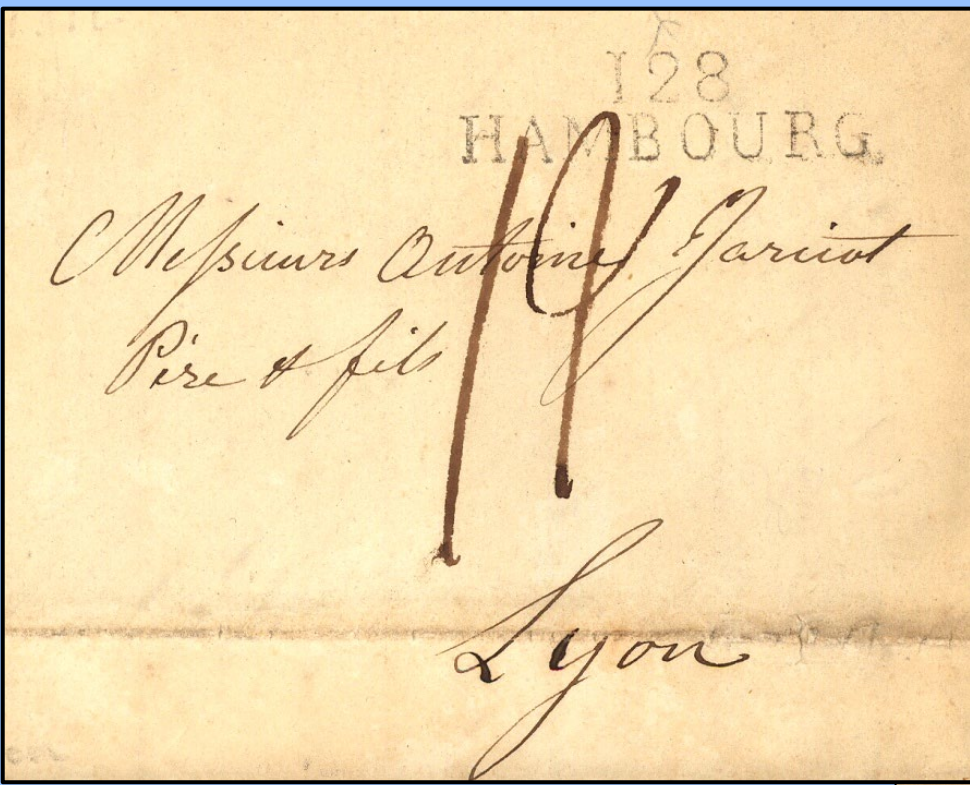 128
HAMBOURG.
Messieurs Antoine Jaricot
Père & fils
19
Lyon